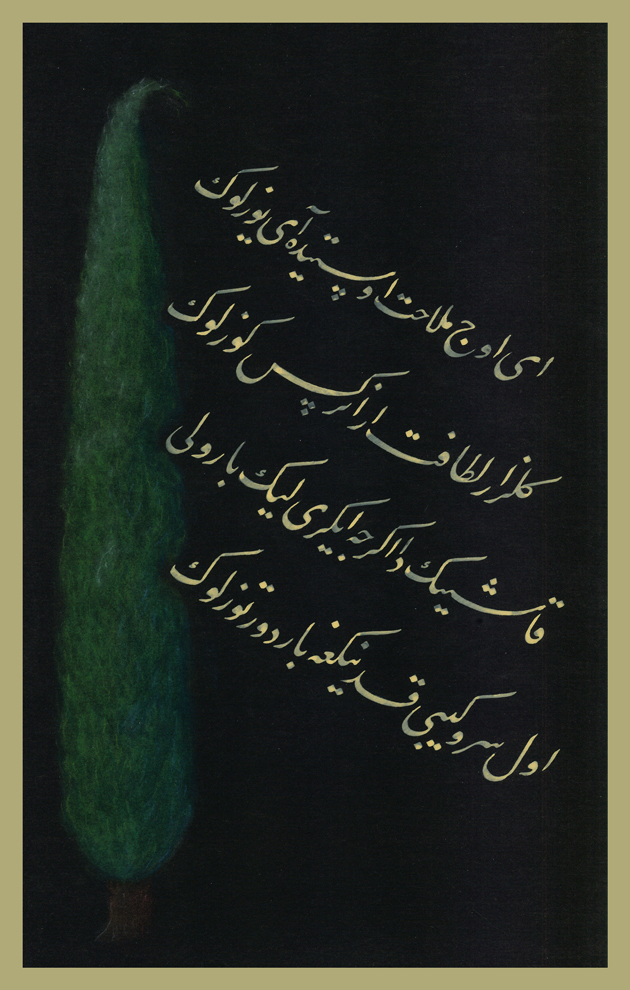 ای اوج ملاحت اوستیده آی یوزلوک
گلزار لطافت ارا نرگس کوزلوک
قاشینک دا اگرچه ایگری لیک بار ولی
اول سرو کیبی قدینگغه باردور توزلوک